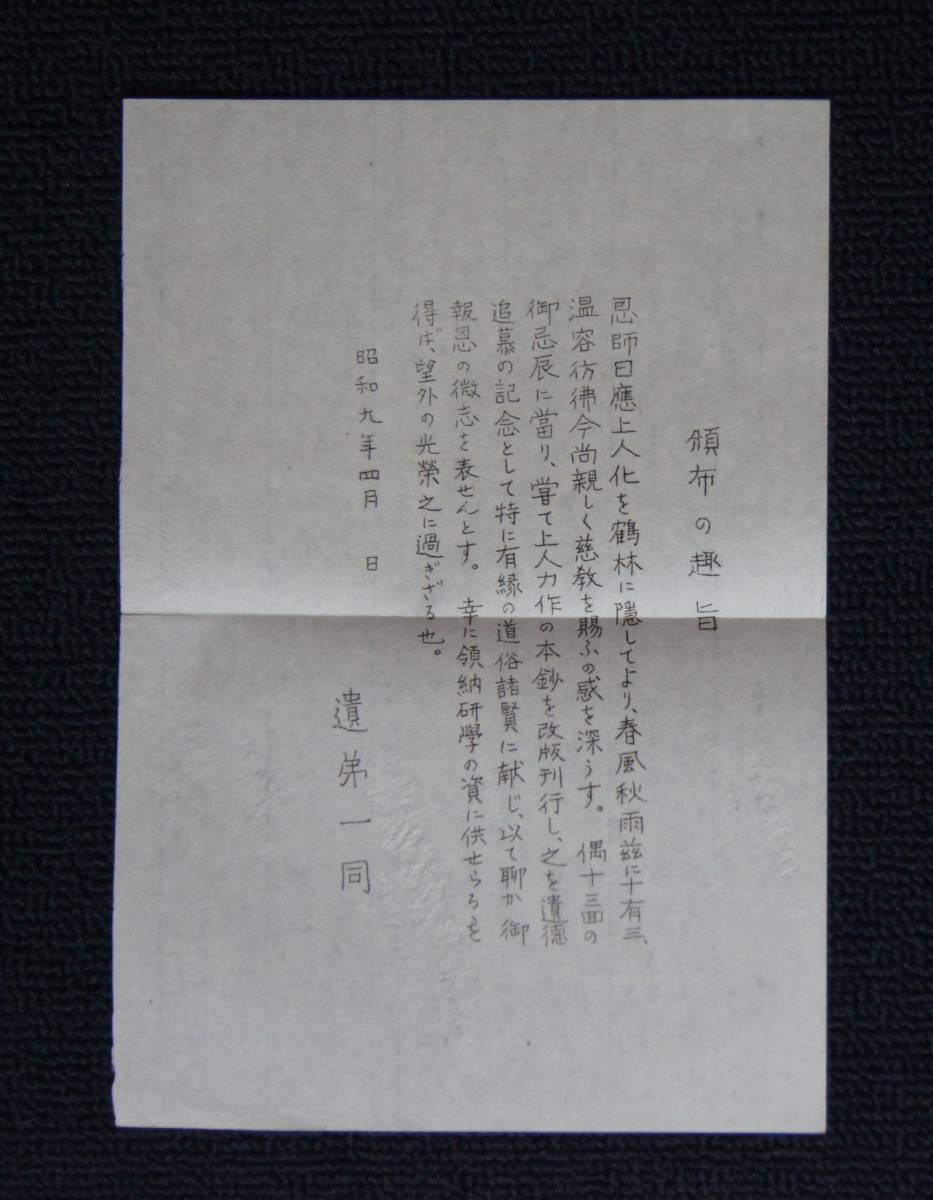 頒布の趣旨
恩師日應上人化を鶴林に隱してより、春風秋雨茲に十有三、
温容彷彿今尚親しく慈教を賜ふの感を深うす。 偶十三囬の
御忌辰に當り、甞て上人力作の本鈔を改版刊行し、之を遺德
追慕の記念として特に有縁の道俗諸賢に献じ、以て聊か御
報恩の微志を表せんとす。 幸に領納研學の資に供せらるを
得ば、望外の光榮之に過ぎざる也。
昭和九年四月 日
遺弟一同